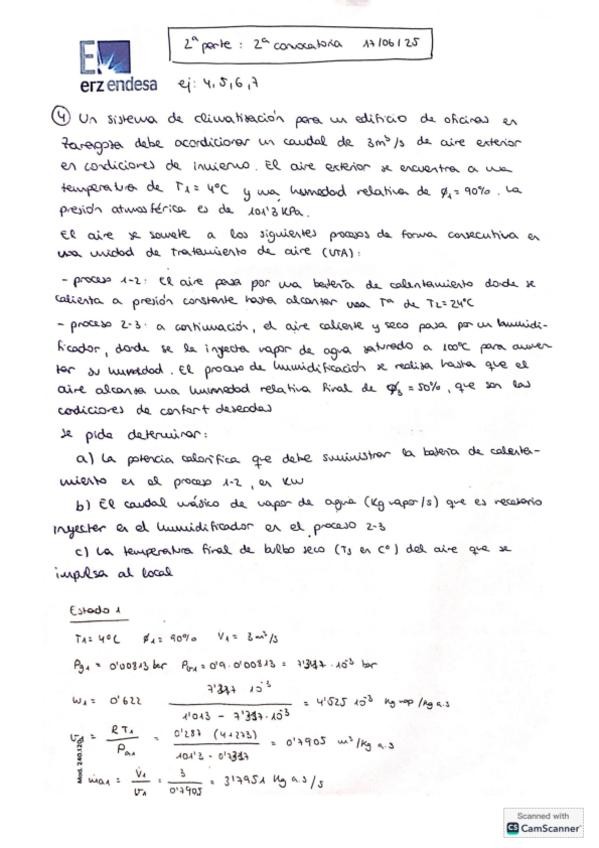 2ª parte : 2ª convocatoria 17/06/25
E
erz endesa
ej: 4,5,6,7
④ Un sistema de climatización para un edificio de oficinas en
Zaragoza debe acondicionar un caudal de 3m³/s de aire exterior
en condiciones de invierno. El aire exterior se encuentra a una
temperatura de T₁ = 4ºC y una humedad relativa de ϕ₁ = 90%. La
presión atmosférica es de 101'3 KPa.
El aire se somete a los siguientes procesos de forma consecutiva en
una unidad de tratamiento de aire (UTA):
- proceso 1-2: El aire pasa por una batería de calentamiento donde se
calienta a presión constante hasta alcanzar una Tª de T₂ = 24ºC
- proceso 2-3: a continuación, el aire caliente y seco pasa por un humidi-
ficador, donde se le inyecta vapor de agua saturado a 100ºC para aumen
tar su humedad. El proceso de humidificación se realiza hasta que el
aire alcanza una humedad relativa final de ϕ₃ = 50%, que son las
condiciones de confort deseadas
Se pide determinar:
a) La potencia calorífica que debe suministrar la batería de calenta-
miento en el proceso 1-2, en KW
b) El caudal másico de vapor de agua (Kg vapor/s) que es necesario
inyectar en el humidificador en el proceso 2-3
c) La temperatura final de bulbo seco (T₃ en Cº) del aire que se
impulsa al local
Estado 1
T₁ = 4ºC ϕ₁ = 90% V₁ = 3 m³/s
Pg₁ = 0'00813 bar Pv₁ = 0'9 · 0'00813 = 7'317 · 10⁻³ bar
W₁ = 0'622 7'317 10⁻³ / 1'013 - 7'317 · 10⁻³ = 4'525 10⁻³ Kg vap /Kg a.s
v₁ = R T₁ / Pa₁ = 0'287 (4+273) / 101'3 - 0'7317 = 0'7905 m³/Kg a.s
ṁa₁ = V̇₁ / v₁ = 3 / 0'7905 = 3'7951 Kg a.s/s
Scanned with
CS CamScanner